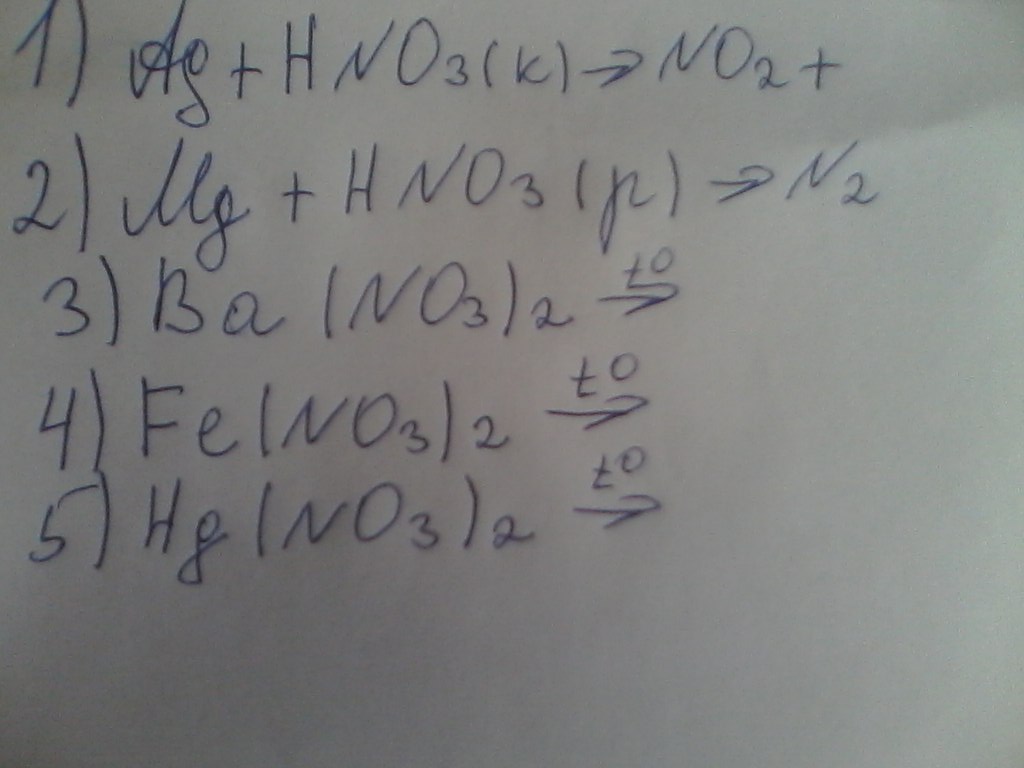 1) Ag + HNO3(к) → NO2 +
2) Mg + HNO3(р) → N2
3) Ba(NO3)2 t0→
4) Fe(NO3)2 t0→
5) Hg(NO3)2 t0→